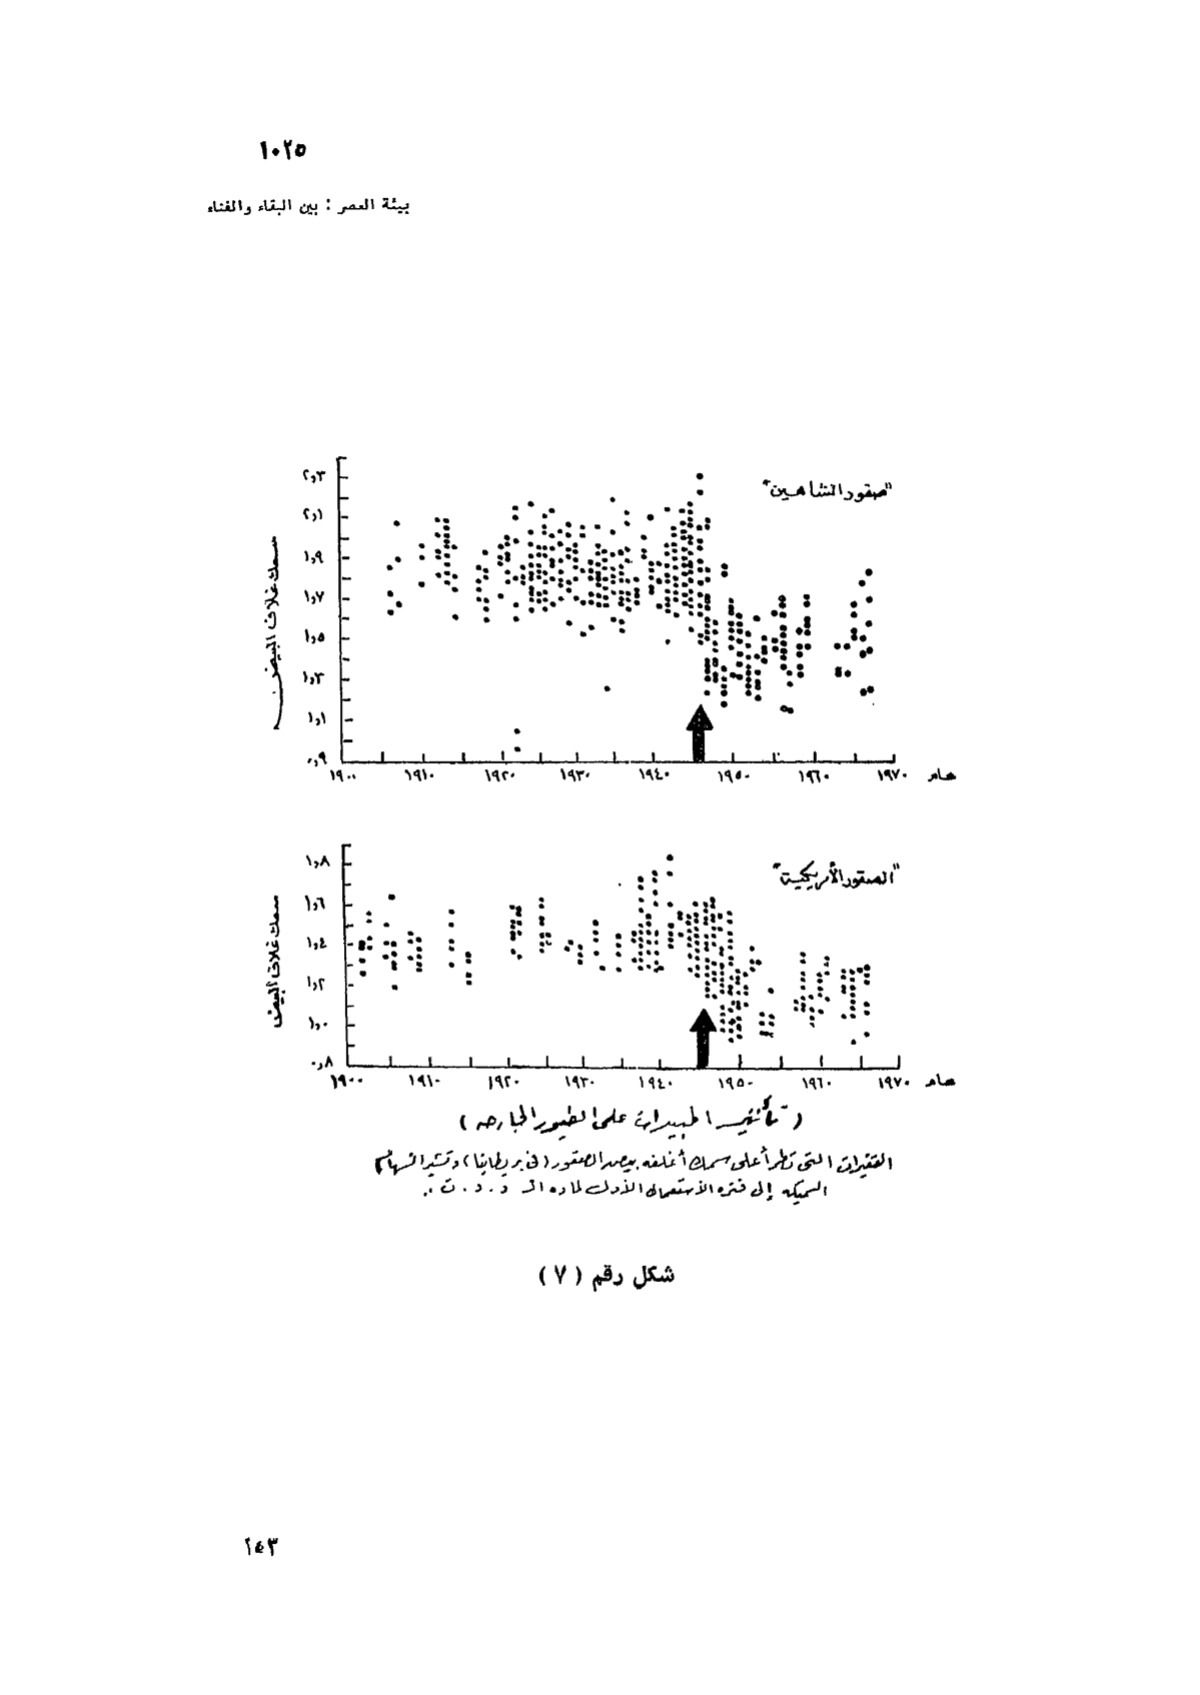 ١٠٢٥
بيئة العصر : بين البقاء والفناء
"صقور الشاهين"
سمك غلاف البيض
٢,٣
٢,١
١,٩
١,٧
١,٥
١,٣
١,١
٠,٩
١٩٠٠ ١٩١٠ ١٩٢٠ ١٩٣٠ ١٩٤٠ ١٩٥٠ ١٩٦٠ ١٩٧٠ عام
"الصقور الأمريكية"
سمك غلاف البيض
١,٨
١,٦
١,٤
١,٢
١,٠
٠,٨
١٩٠٠ ١٩١٠ ١٩٢٠ ١٩٣٠ ١٩٤٠ ١٩٥٠ ١٩٦٠ ١٩٧٠ عام
( تأثير المبيدات على الطيور الجارحه )
التغيرات التى تطرأ على سمك أغلفه بيض الصقور (فى بريطانيا) وتشير السهام
السميكه إلى فتره الأستعمال الأول لماده الـ د . د . ت .
شكل رقم ( ٧ )
١٤٣